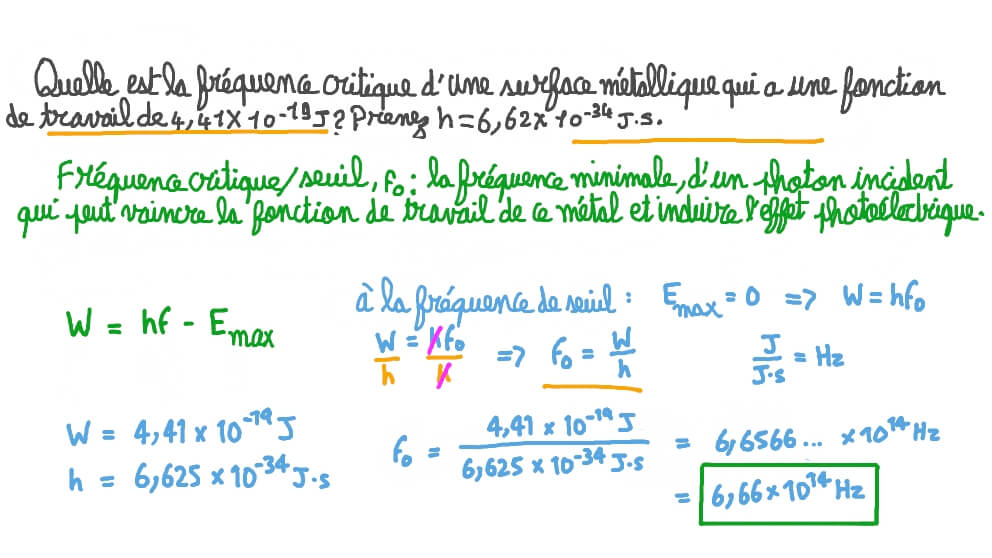 Quelle est la fréquence critique d'une surface métallique qui a une fonction
de travail de 4,41 × 10⁻¹⁹ J ? Prenez h = 6,62 × 10⁻³⁴ J.s.
Fréquence critique/seuil, f₀ : la fréquence minimale, d'un photon incident
qui peut vaincre la fonction de travail de ce métal et induire l'effet photoélectrique.
à la fréquence de seuil : E_max = 0 => W = hf₀
W = hf - E_max
W/h = hf₀/h => f₀ = W/h J/J·s = Hz
W = 4,41 × 10⁻¹⁹ J
h = 6,625 × 10⁻³⁴ J·s
f₀ = 4,41 × 10⁻¹⁹ J / 6,625 × 10⁻³⁴ J·s = 6,6566... × 10¹⁴ Hz
= 6,66 × 10¹⁴ Hz